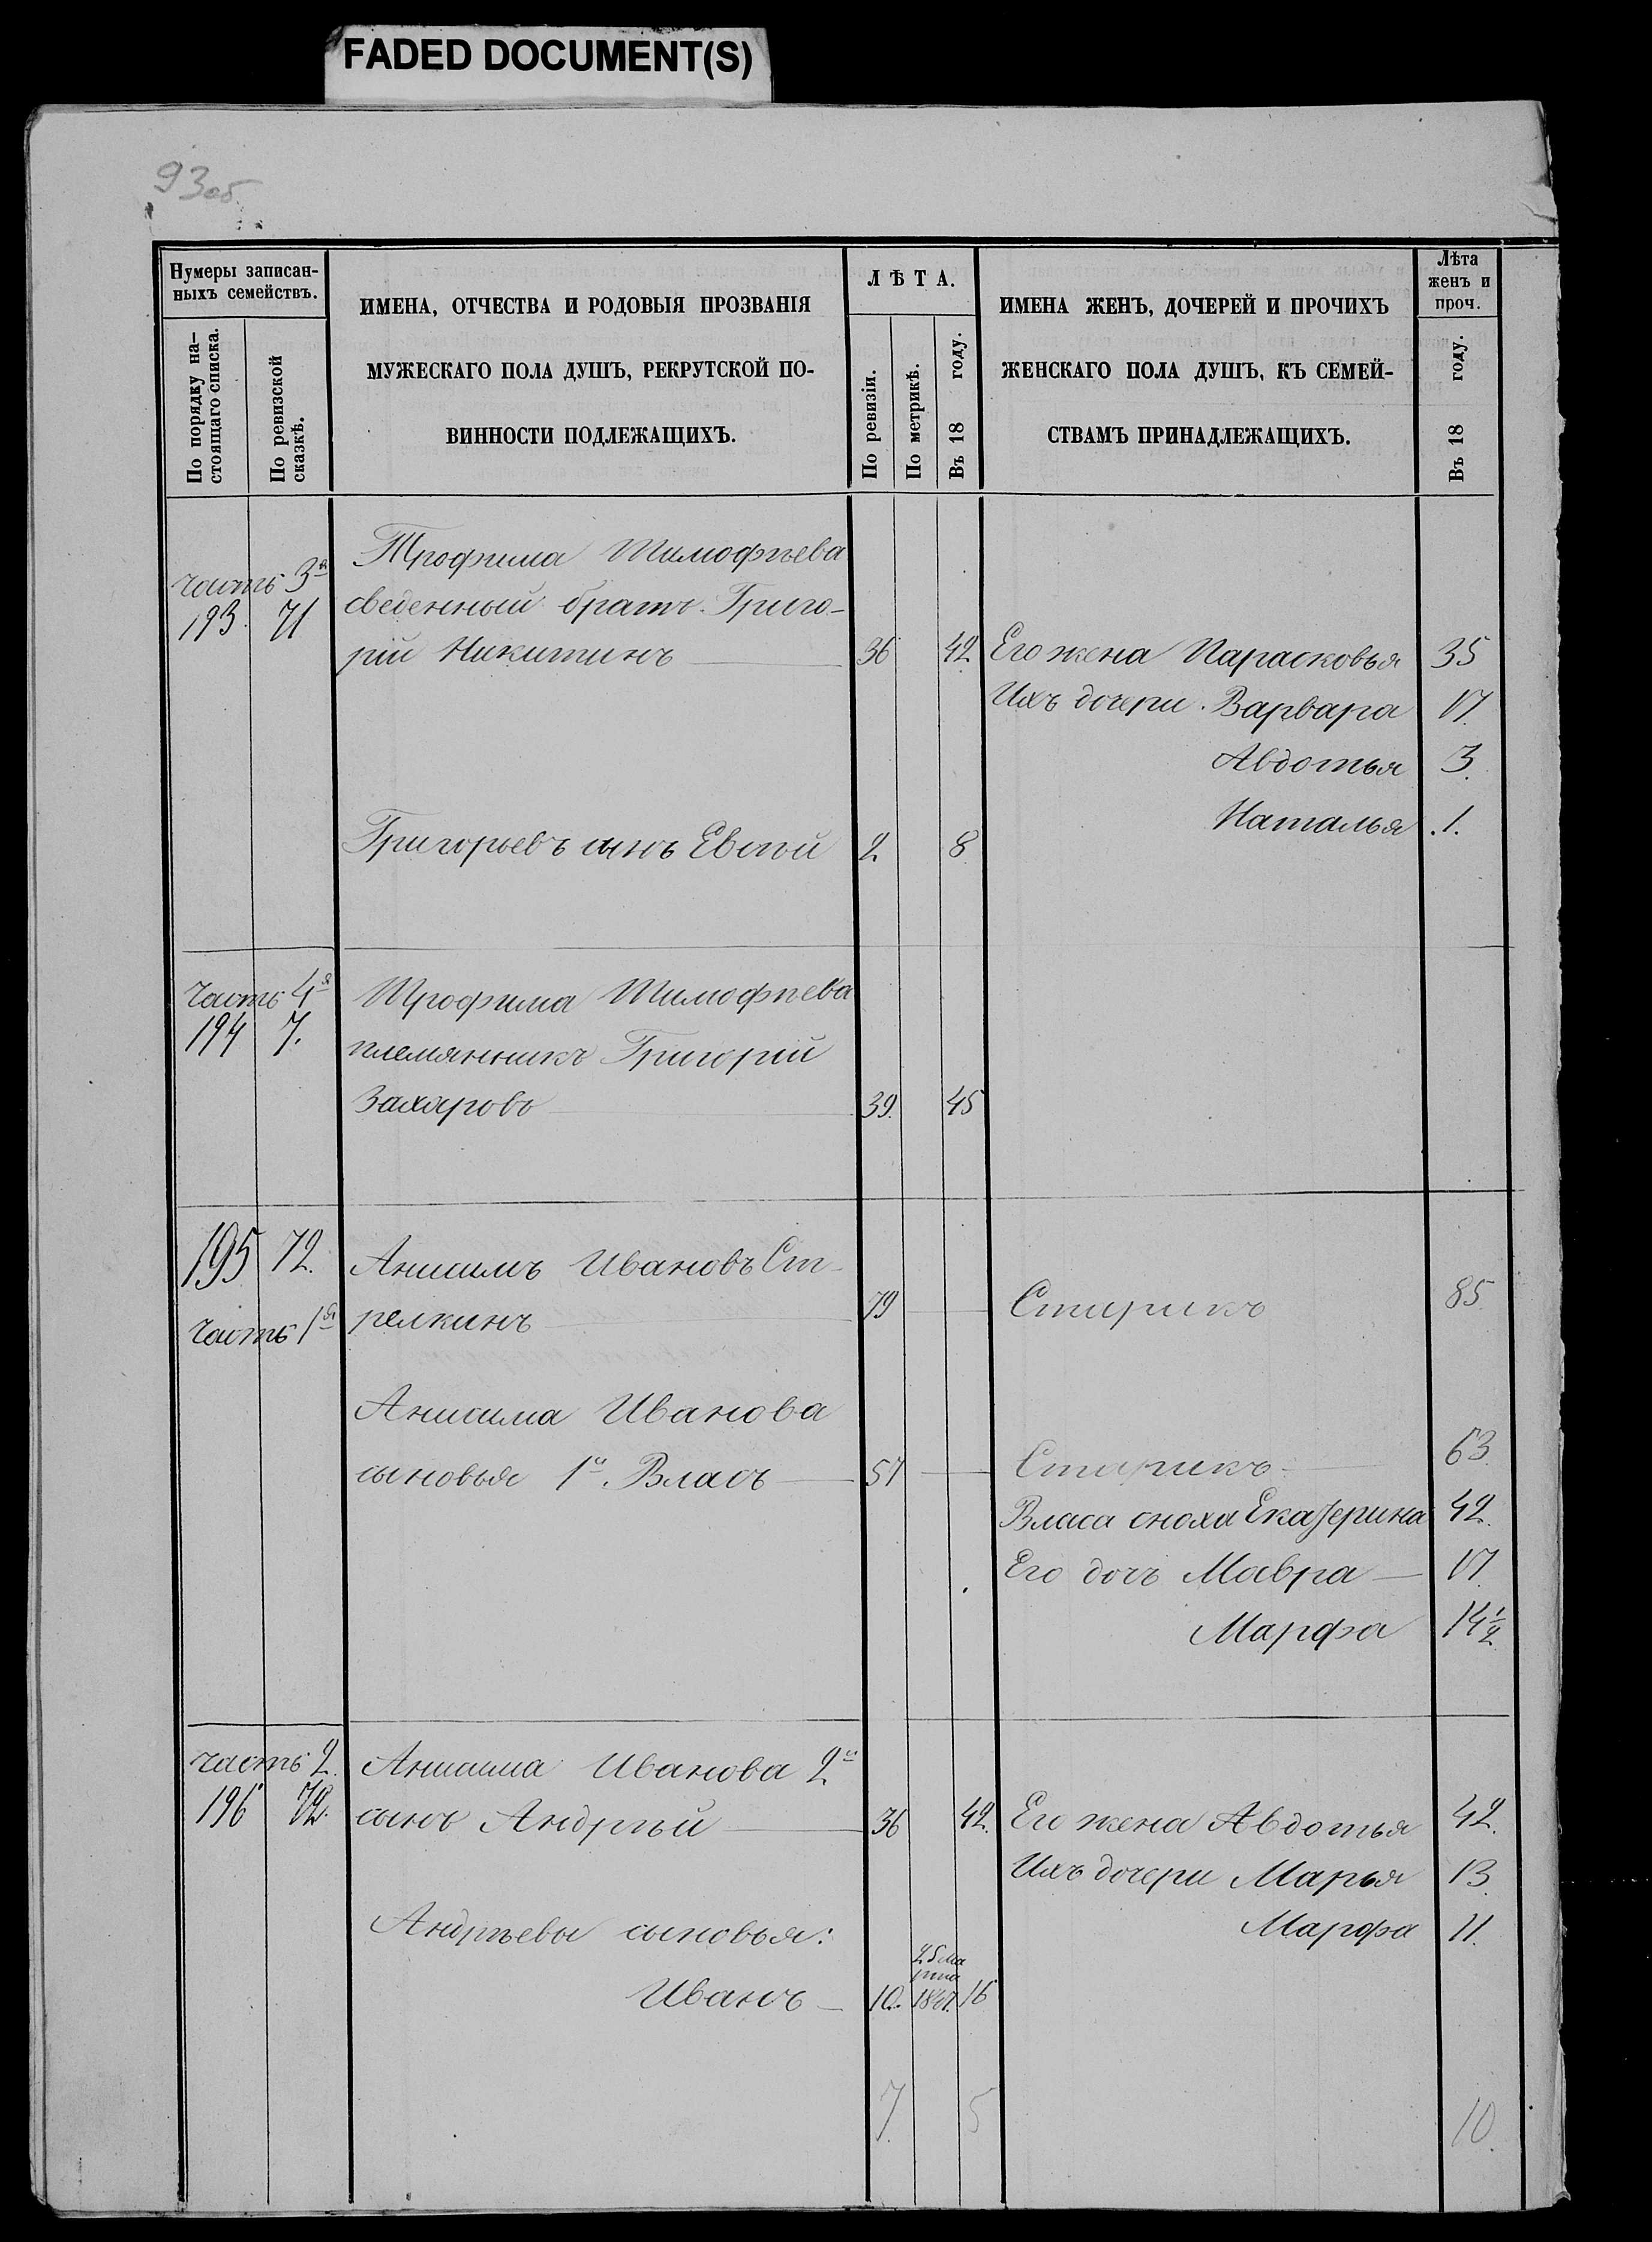 FADED DOCUMENT(S)
93об.
Нумеры записан-
ныхъ семействъ.
По порядку на-
стоящаго списка.
По ревизской
сказкѣ.
ИМЕНА, ОТЧЕСТВА И РОДОВЫЯ ПРОЗВАНІЯ
МУЖЕСКАГО ПОЛА ДУШЪ, РЕКРУТСКОЙ ПО-
ВИННОСТИ ПОДЛЕЖАЩИХЪ.
ЛѢТА.
По ревизіи.
По метрикѣ.
Въ 18 году.
ИМЕНА ЖЕНЪ, ДОЧЕРЕЙ И ПРОЧИХЪ
ЖЕНСКАГО ПОЛА ДУШЪ, КЪ СЕМЕЙ-
СТВАМЪ ПРИНАДЛЕЖАЩИХЪ.
Лѣта
женъ и
проч.
Въ 18 году.
Трофима Тимофѣева
часть 3я
193. 71 сведенный братъ Григо-
рій Никитинъ 36 42 Его жена Парасковья 35
Ихъ дочери. Варвара 17.
Авдотья 3.
Наталья .1.
Григорьевъ сынъ Евсѣй 2 8
часть 4я Трофима Тимофѣева
194 7. племянникъ Григорій
Захаровъ 39. 45
195 72. Анисимъ Ивановъ Ст-
часть 1я релкинъ 79 Старикъ 85
Анисима Иванова
сыновья 1й. Власъ 57 Старикъ 63
Власа сноха Екатерина 42.
Его дочь Мавра 17.
Марфа 14 1/2
часть 2. Анисима Иванова 2й
196 72. сынъ Андрѣй 36 42. Его жена Авдотья 42.
Ихъ дочери Марья 13.
Марфа 11.
Андрѣевы сыновья:
Иванъ 10. 16
7. 5 10.